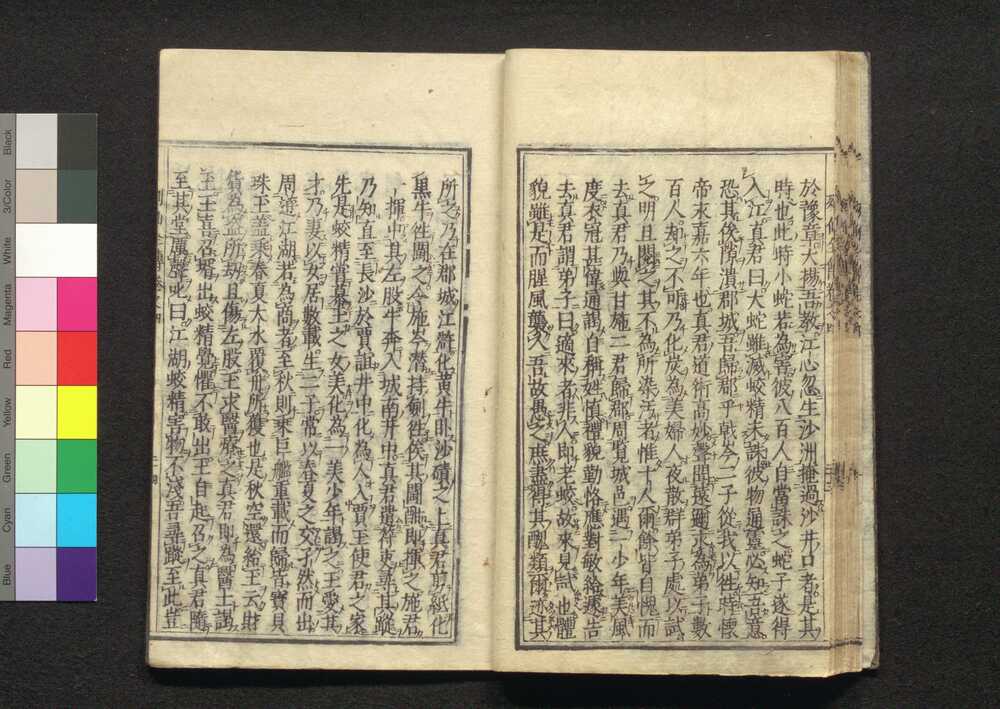 於豫章大揚吾教江心忽生沙洲掩過沙井口者是其
時也此時小蛇若為害彼八百人自當誅之蛇子遂得
入江真君曰大蛇雖滅蛟精未誅彼物通靈必知吾意
恐其俟隙潰郡城吾歸郡乎戟今二子從我以往時懷
帝永嘉六年也真君道術高妙聲聞遠邇求為弟子數
百人却之不可乃化炭為美婦人夜散群弟子處以試
之明旦閱之其不為所染汚者惟十人爾餘皆自愧而
去真君乃與甘施二君歸郡周覽城邑遇一少年美風
度衣冠甚偉通謁自稱姓慎禮貌勤恪應對敏給遽告
去真君謂弟子曰適來者非人即老蛟故來見試也體
貌雖是而腥風襲人吾故愚之庶盡得其醜類爾迹其
所之乃在郡城江滸化黄牛臥沙磧之上真君剪紙化
黒牛往鬪之令施岑潜持剣往俟其鬪酣即揮之施君
一揮中其左股牛奔入城南井中真君遣符吏尋其蹤
乃知直至長沙於賈誼井中化為人入賈玉使君之家
先是蛟精嘗慕玉之女美化為一美少年謁之玉愛其
才乃妻以女居數載生二子常以春夏之交孑然而出
周遊江湖若為商者至秋則乘巨艦重載而歸皆寶貝
珠玉蓋乘春夏大水覆舟所獲也是秋空還紿玉云財
貨為盗所劫且傷左股玉求醫療之真君即為醫士謁
玉玉喜召壻出蛟精覺懼不敢出玉自起召之真君隨
至其堂厲聲叱曰江湖蛟精害物不淺吾尋蹤至此豈